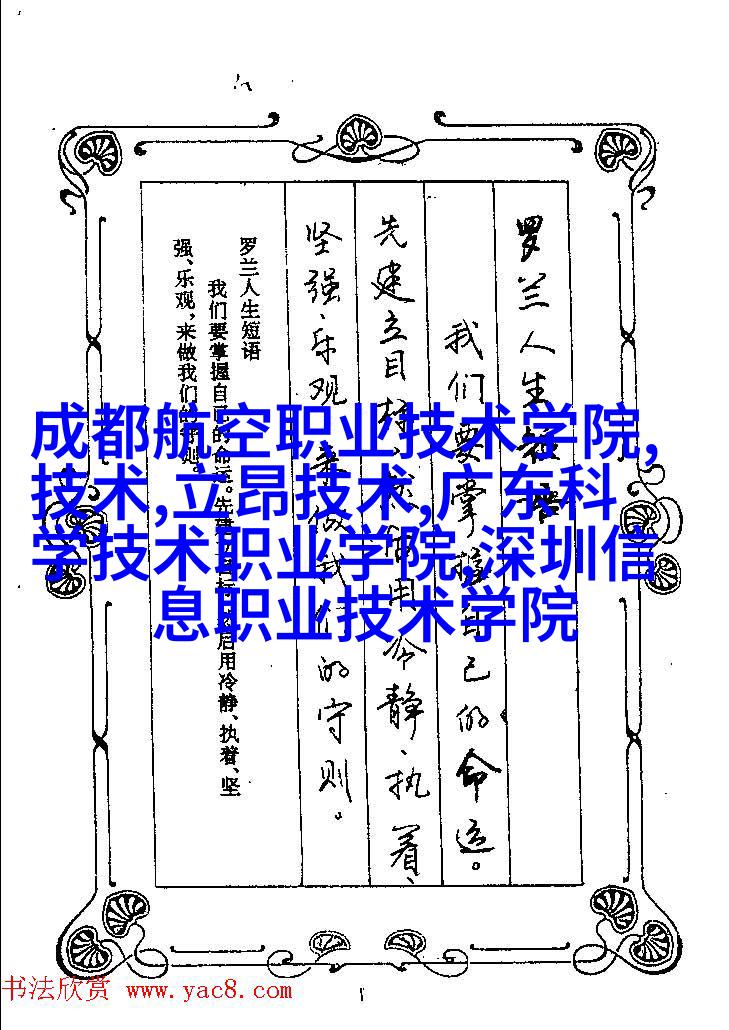 罗兰人生短语
我们要掌握自己的命运。
先建立目标,然后用冷静、执着、
坚强、乐观,来做我们的守则。
罗兰人生短语
我们要掌握自己的命运。先建立目标,然后用冷静、执着、坚
强、乐观,来做我们的守则。
成都航空职业技术学院,
技术,立昂技术,广东科
学技术职业学院,深圳信
息职业技术学院
书法欣赏 www.yac8.com
1